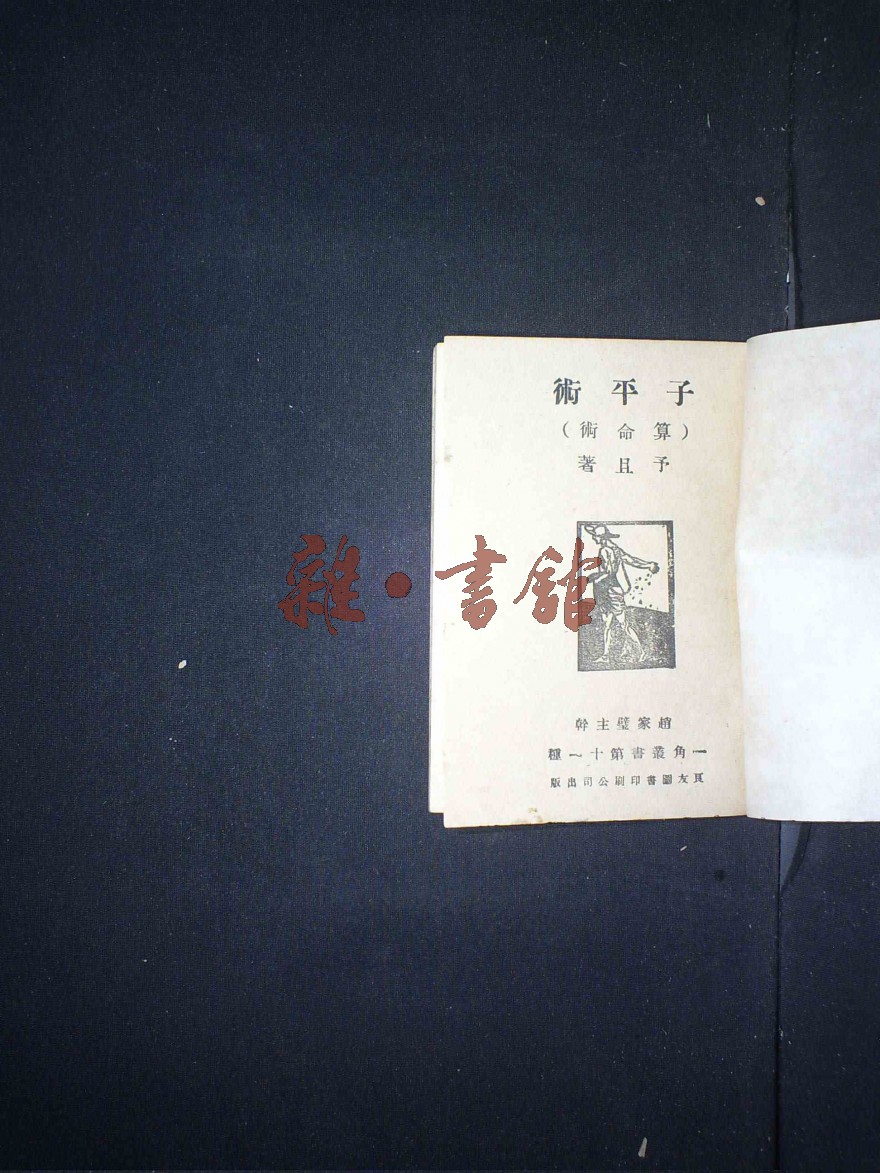 子平術
(算命術)
予且著
趙家璧主幹
一角叢書第十一種
良友圖書印刷公司出版
雜·書館